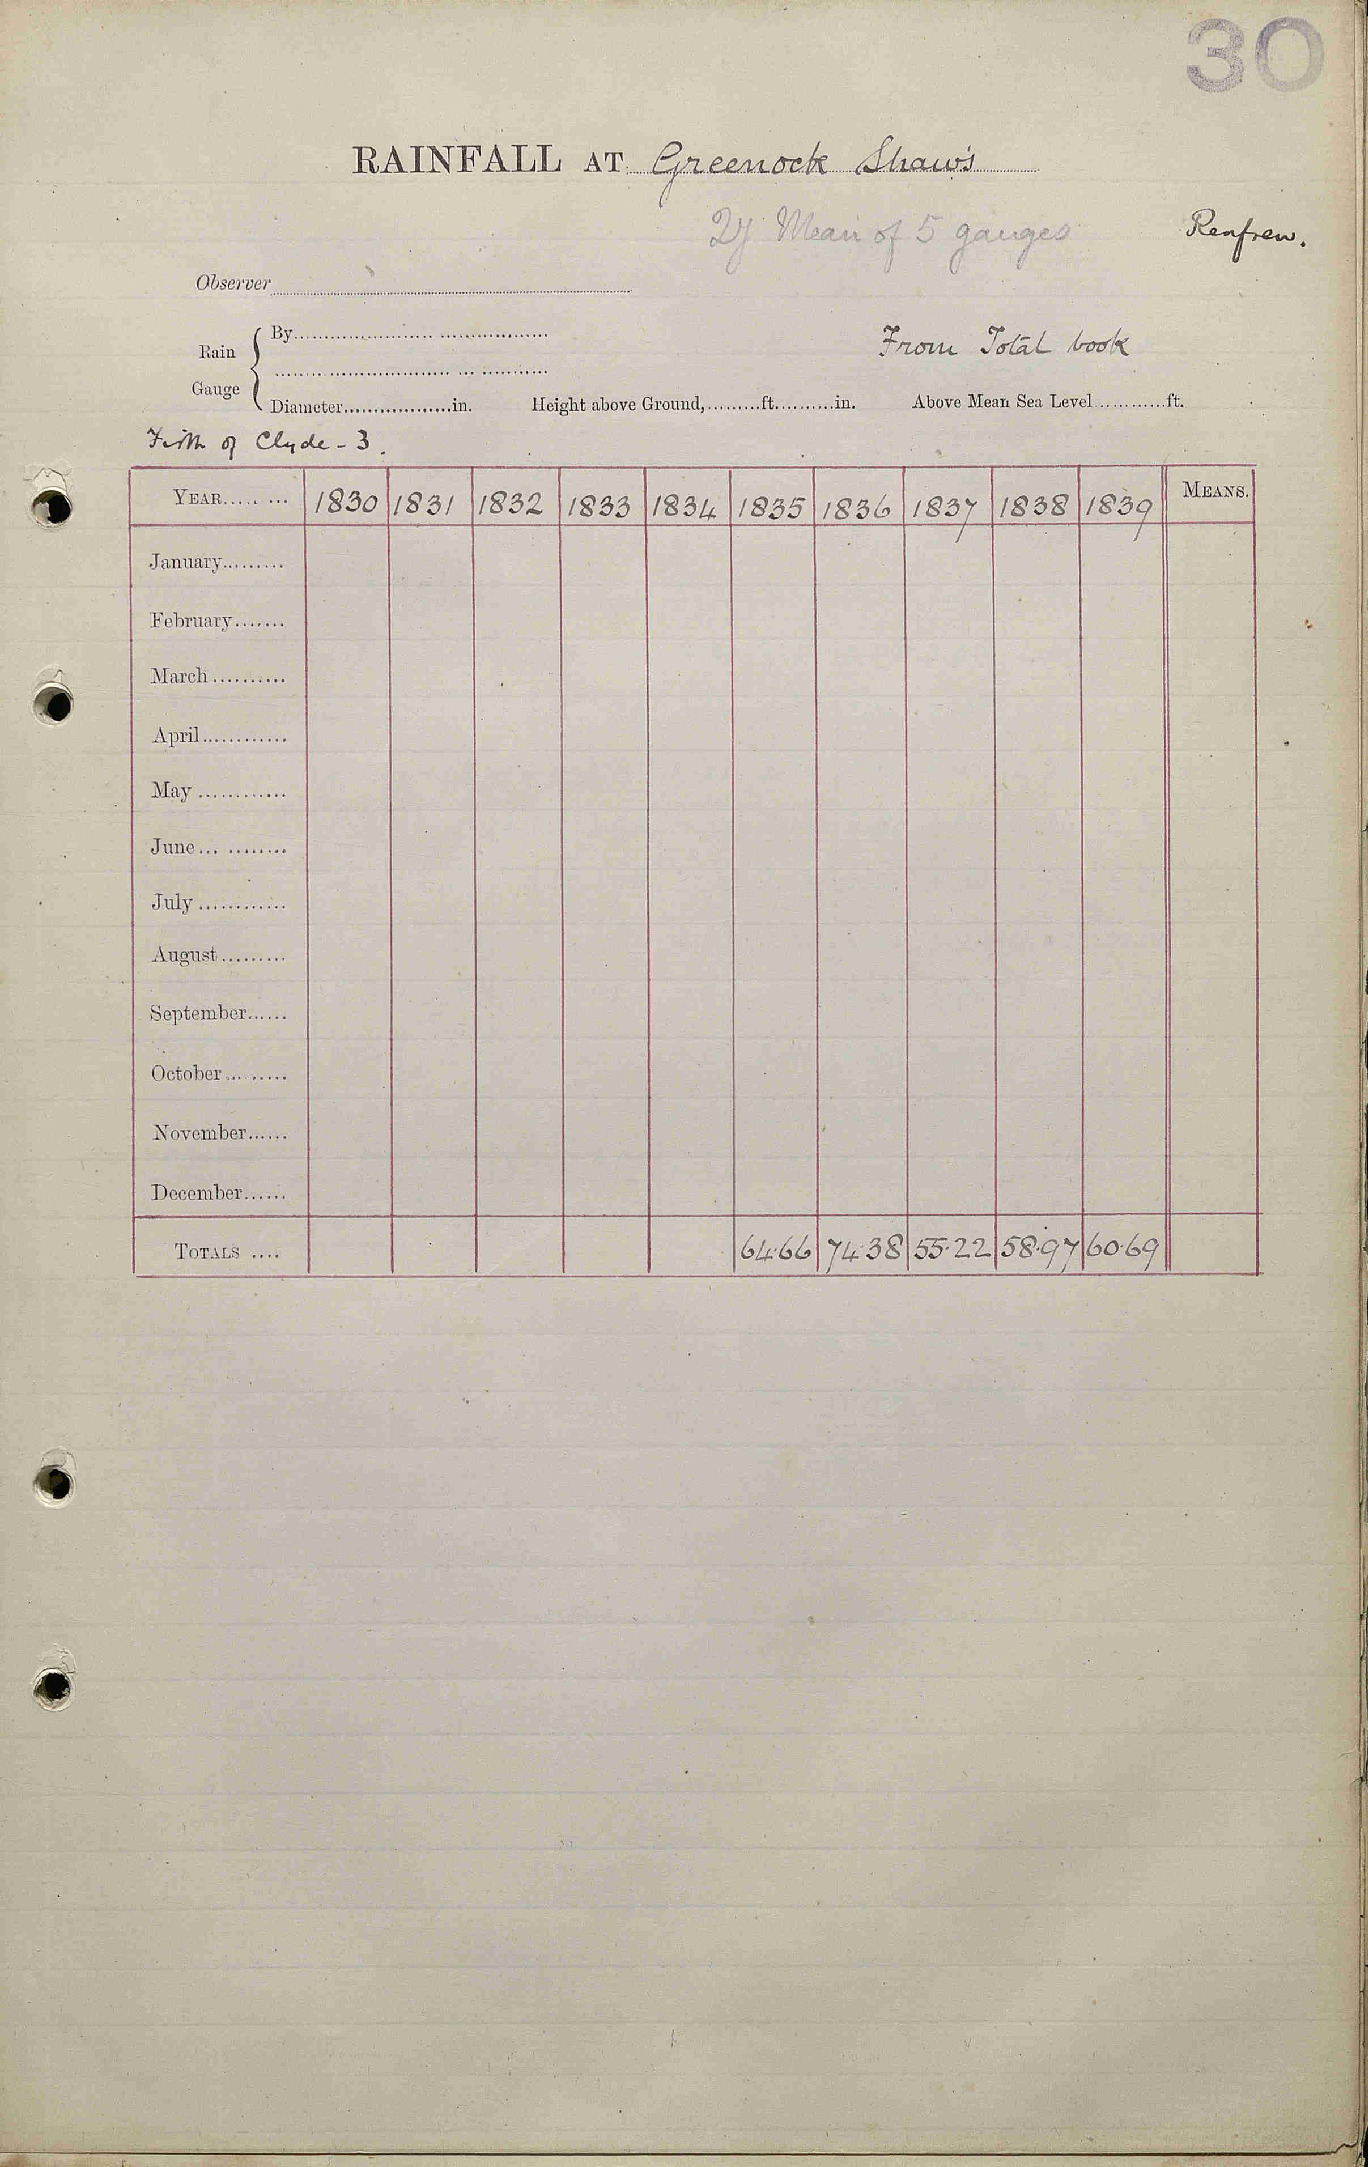 30
RAINFALL AT Greenock Shaws
Mean of 5 gauges
Renfrew.
Observer
Rain Gauge
By
From Total book
Diameter in. Height above Ground, ft. in. Above Mean Sea Level ft.
Firth of Clyde - 3.
YEAR 1830 1831 1832 1833 1834 1835 1836 1837 1838 1839 MEANS.
January
February
March
April
May
June
July
August
September
October
November
December
TOTALS 64.66 74.38 55.22 58.97 60.69